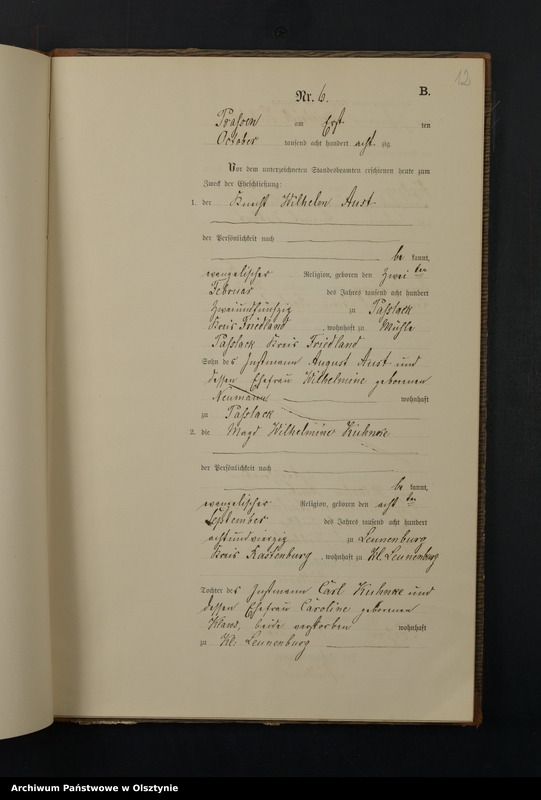 12
Nr. 6. B.
Prassen am Erst ten
October tausend acht hundert acht zig
Vor dem unterzeichneten Standesbeamten erschienen heute zum
Zweck der Eheschließung:
1. der Knecht Wilhelm Aust
der Persönlichkeit nach
be kannt,
evangelischer Religion, geboren den zwei ten
Februar des Jahres tausend acht hundert
zweiundfünfzig zu Passlack
Kreis Friedland, wohnhaft zu Mühle
Passlack Kreis Friedland
Sohn des Instmann August Aust und
dessen Ehefrau Wilhelmine geborenen
Neumann wohnhaft
zu Passlack
2. die Magd Wilhelmine Kuhnke
der Persönlichkeit nach
be kannt,
evangelischer Religion, geboren den acht ten
September des Jahres tausend acht hundert
achtundvierzig zu Leunenburg
Kreis Rastenburg, wohnhaft zu Kl. Leunenburg
Tochter des Instmann Carl Kuhnke und
dessen Ehefrau Caroline geborenen
Klaus, beide verstorben wohnhaft
zu Kl. Leunenburg
Archiwum Państwowe w Olsztynie